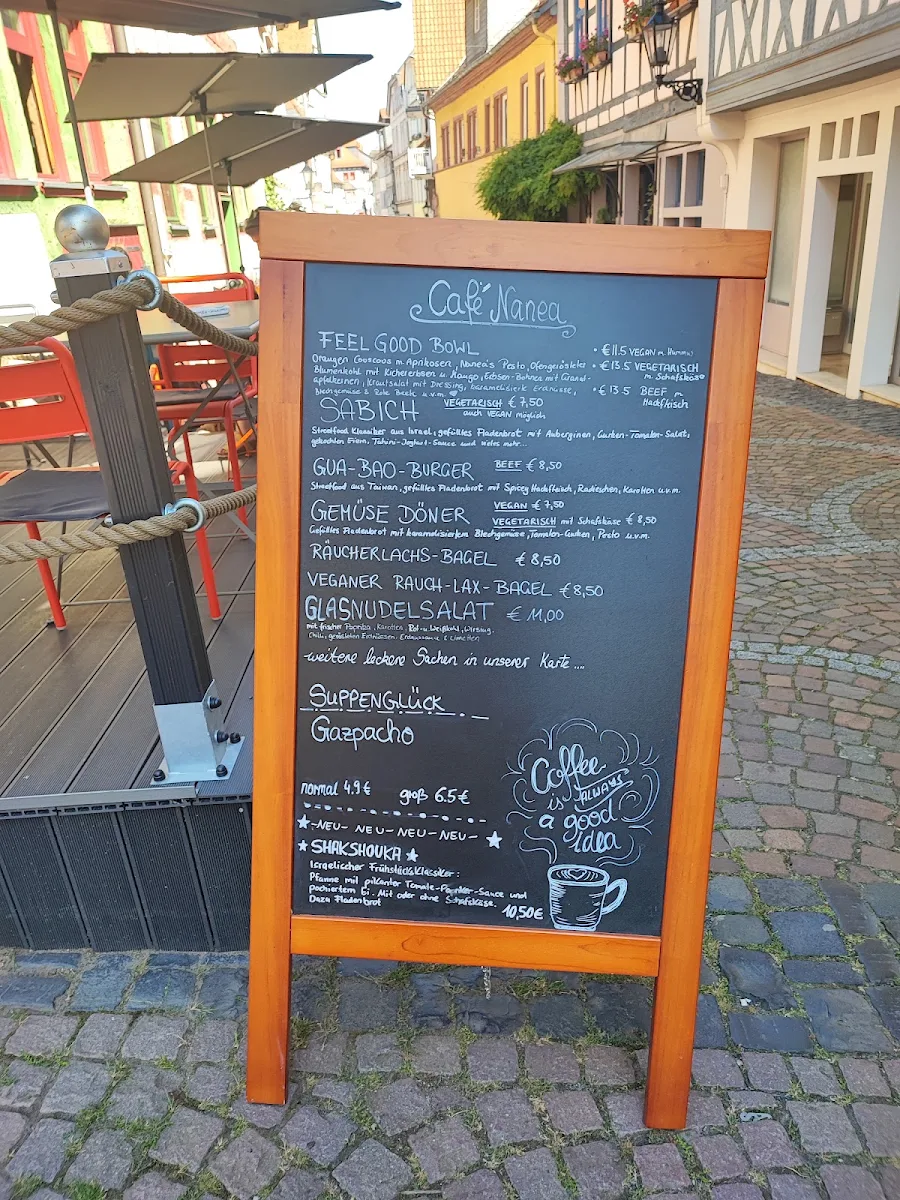 Café Nanea
FEEL GOOD BOWL
Orangen Couscous m. Aprikosen, Nanea's Pesto, Ofengerösteter
Blumenkohl mit Kichererbsen u Mango, Erbsen-Bohnen mit Granat-
apfelkernen, Krautsalat mit Dressing, karamelisierte Erdnüsse,
Blechgemüse & Rote Beete u.v.m.
• €11.5 VEGAN m. Hummus
• €13.5 VEGETARISCH
m. Schafskäse
• €13.5 BEEF m.
Hackfleisch
SABICH VEGETARISCH € 7,50
auch VEGAN möglich
Streetfood Klassiker aus Israel, gefülltes Fladenbrot mit Auberginen, Gurken-Tomaten-Salat,
gekochten Eiern, Tahini-Joghurt-Sauce und vieles mehr...
GUA-BAO-BURGER BEEF € 8,50
Streetfood aus Taiwan, gefülltes Fladenbrot mit Spicey Hackfleisch, Radieschen, Karotten u.v.m.
GEMÜSE DÖNER VEGAN € 7,50
VEGETARISCH mit Schafskäse € 8,50
Gefülltes Fladenbrot mit karamalisiertem Blechgemüse, Tomaten-Gurken, Pesto u.v.m.
RÄUCHERLACHS-BAGEL € 8,50
VEGANER RAUCH-LAX-BAGEL €8,50
GLASNUDELSALAT € 11,00
mit frischer Paprika, Karotten, Rot- u. Weißkohl, Wirsing,
Chili, gerösteten Erdnüssen, & Limetten
weitere leckere Sachen in unserer Karte ....
SUPPENGLÜCK
Gazpacho
normal 4.9 € groß 6.5 €
-NEU- NEU-NEU-NEU-
SHAKSHOUKA
Israelischer Frühstücksklassiker:
Pfanne mit pikanter Tomate-Paprika-Sauce und
pochiertem Ei. Mit oder ohne Schafskäse.
Dazu Fladenbrot 10,50€
Coffee
is ALWAYS
a good
idea